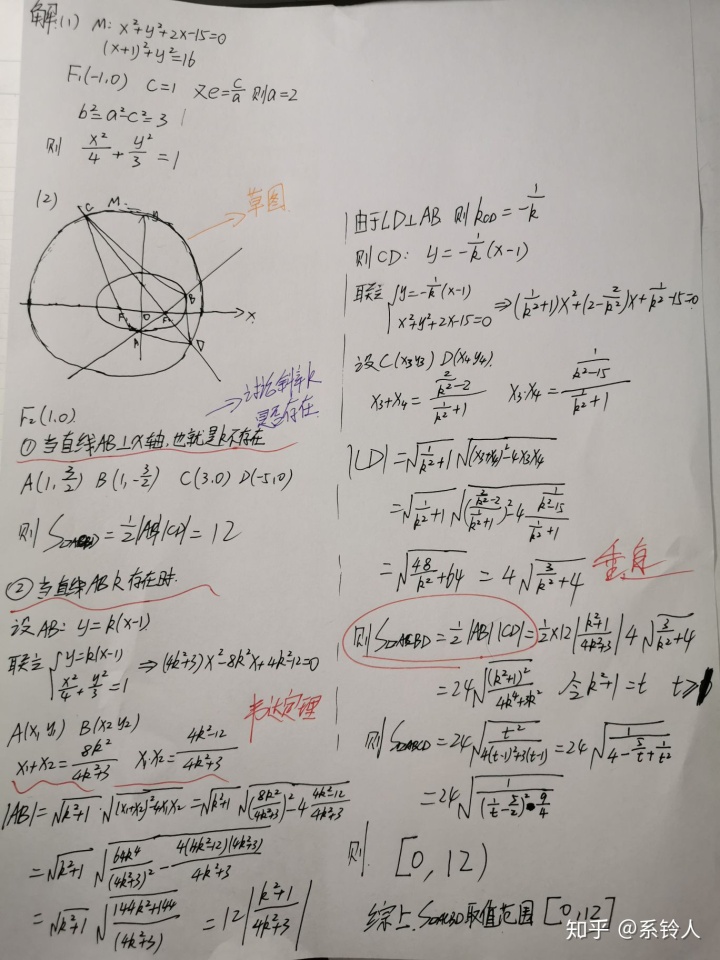 解:(1) M: x²+y²+2x-15=0
(x+1)²+y²=16
F₁(-1,0) C=1 又e=c/a 则a=2
b²=a²-c²=3
则 x²/4 + y²/3 = 1
(2)
C M:
草图
B
F₁ O F₂ x
A D
讨论斜率k是否存在
F₂(1,0)
①当直线AB⊥x轴,也就是k不存在
A(1,3/2) B(1,-3/2) C(3,0) D(-5,0)
则S=1/2|AB||CD|=12
②当直线AB k存在时.
设AB: y=k(x-1)
联立{y=k(x-1) x²/4+y²/3=1 ⇒(4k²+3)x²-8k²x+4k²-12=0
A(x₁y₁) B(x₂y₂)
韦达定理
x₁+x₂=8k²/(4k²+3) x₁·x₂=(4k²-12)/(4k²+3)
|AB|=√(k²+1) √((x₁+x₂)²-4x₁x₂)=√(k²+1) √((8k²/(4k²+3))²-4(4k²-12)/(4k²+3))
=√(k²+1) √(64k⁴/(4k²+3)²-4(4k²-12)(4k²+3)/(4k²+3))
=√(k²+1) √((144k²+144)/(4k²+3)) =12|(k²+1)/(4k²+3)|
由于CD⊥AB 则kCD=-1/k
则CD: y=-1/k(x-1)
联立{y=-1/k(x-1) x²+y²+2x-15=0 ⇒(1/k²+1)x²+(2-2/k²)x+1/k²-15=0
设C(x₃y₃) D(x₄y₄).
x₃+x₄=(2/k²-2)/(1/k²+1) x₃·x₄=(1/k²-15)/(1/k²+1)
|CD|=√(1/k²+1) √((x₃+x₄)²-4x₃x₄)
=√(1/k²+1) √(((2/k²-2)/(1/k²+1))²-4(1/k²-15)/(1/k²+1))
=√(48/k²+64) =4√(3/k²+4)
重点
则SOACBD=1/2|AB||CD|=1/2×12|(k²+1)/(4k²+3)|4√(3/k²+4)
=24√((k²+1)²/(4k⁴+3k²)) 令k²+1=t t>1
则SOABCD=24√(t²/(4(t-1)²+3(t-1)))=24√(1/(4-5/t+1/t²))
=24√(1/((1/t-5/2)²-9/4))
则. [0,12)
综上.SOACBD取值范围[0,12]
知乎 @系铃人